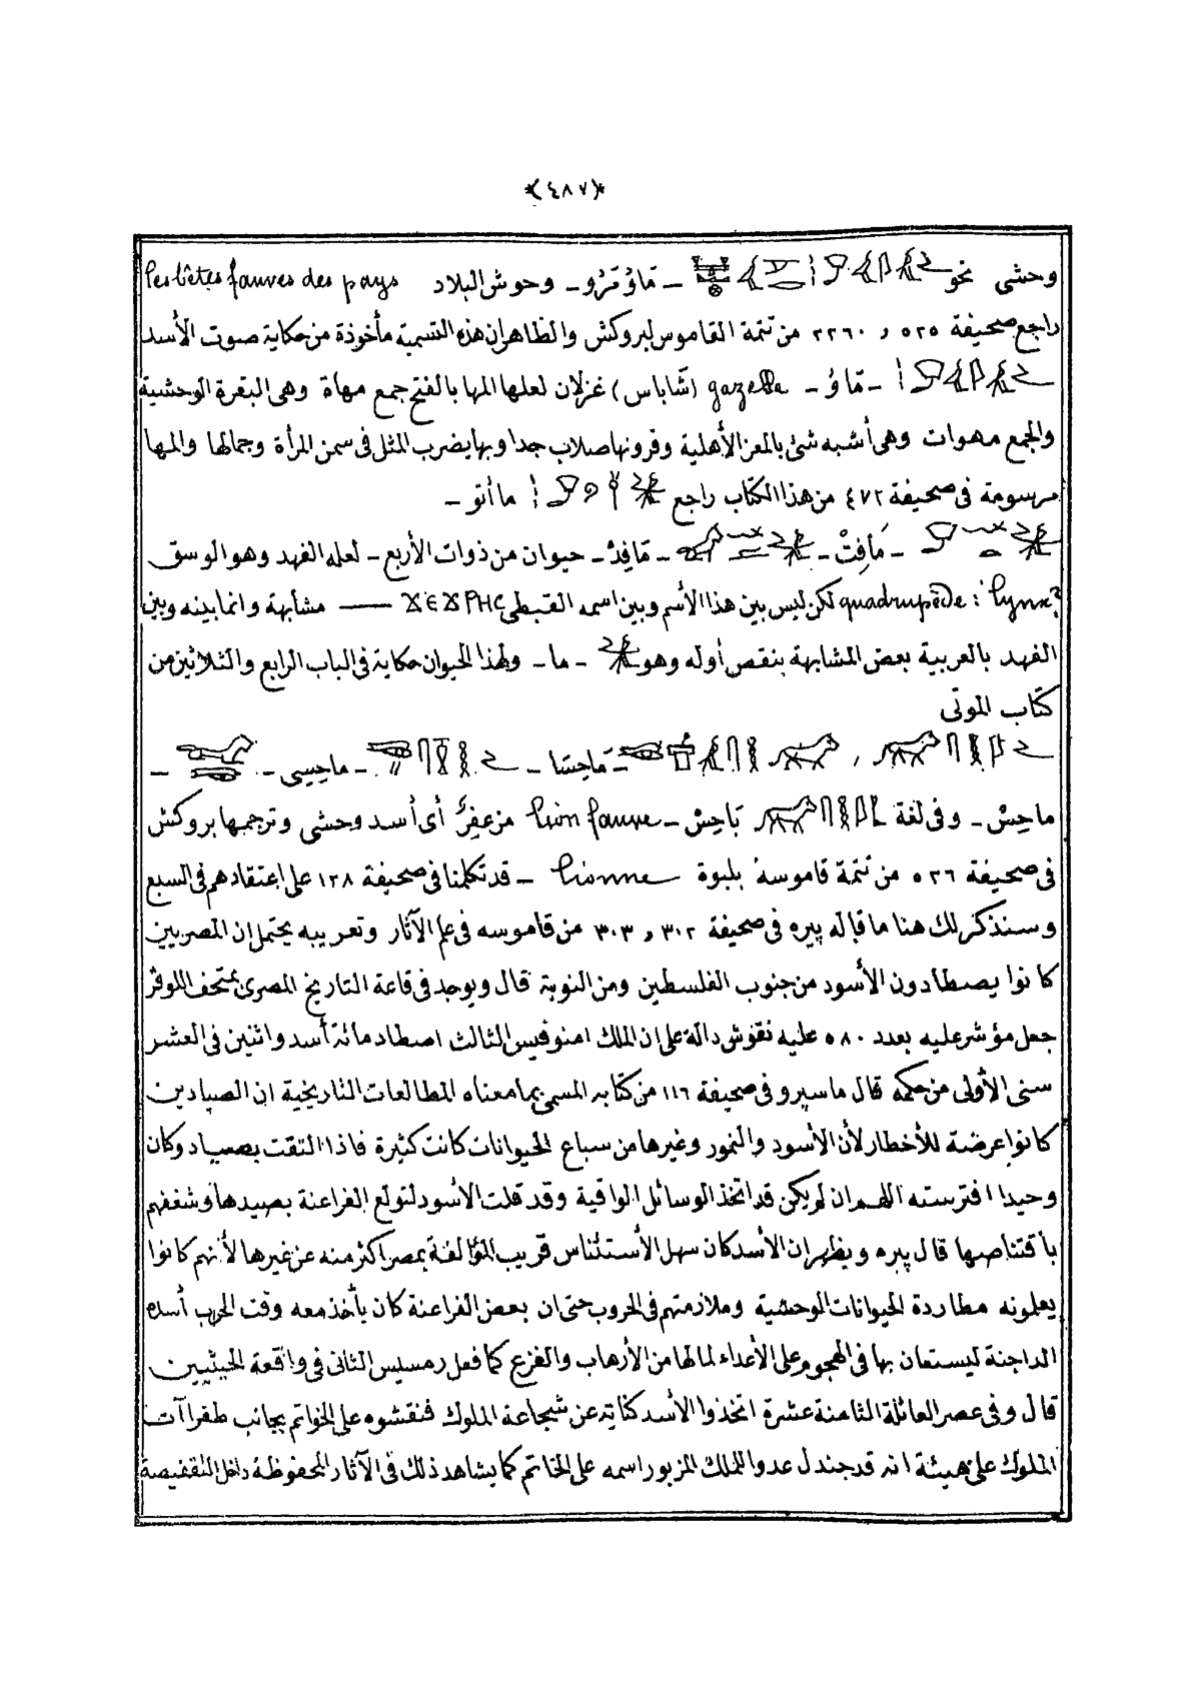 ﴿٤٨٧﴾
وحشى نحو ـ مَاوُ مَرُو ـ وحوش البلاد les bêtes fauves des pays
راجع صحيفة ٥٢٥ و ٢٢٦٠ من تتمة القاموس لبروكش والظاهر ان هذه التسمية مأخوذة من حكاية صوت الأسد
ـ مَاوُ ـ gazelle (شاباس) غزلان لعلها المها بالفتح جمع مهاة وهى البقرة الوحشية
والجمع مهوات وهى أشبه شئ بالمعز الأهلية وقرونها صلاب جدا وبها يضرب المثل فى سمن المرأة وجمالها والمها
مرسومة فى صحيفة ٤٧٢ من هذا الكتاب راجع ماأتو ـ
ـ مَافِتْ ـ ـ مَافِدْ ـ حيوان من ذوات الأربع ـ لعله الفهد وهو الوسق
quadrupède : lynx? لكن ليس بين هذا الأسم وبين اسمه القبطى مشابهة وانما بينه وبين
الفهد بالعربية بعض المشابهة بنقص أوله وهو ـ ما ـ ولهذا الحيوان حكاية فى الباب الرابع والثلاثين من
كتاب الموتى
، ـ مَاحِسَا ـ ـ ماحِسِى ـ ـ
ماحِسْ ـ وفى لغة بَاحِسْ ـ lion fauve مزعفِرٌ أى أسد وحشى وترجمها بروكش
فى صحيفة ٥٢٦ من تتمة قاموسه بلبوة lionne ـ قد تكلمنا فى صحيفة ١٢٨ على اعتقادهم فى السبع
وسنذكر لك هنا ما قاله پيره فى صحيفة ٣٠٢ و ٣٠٣ من قاموسه فى علم الآثار وتعريبه يحتمل ان المصريين
كانوا يصطادون الأسود من جنوب الفلسطين ومن النوبة قال ويوجد فى قاعة التاريخ المصرى بمتحف اللوفر
جعل مؤشر عليه بعدد ٥٨٠ عليه نقوش دالة على ان الملك امنوفيس الثالث اصطاد مائة أسد واثنين فى العشر
سنى الأولى من حكمه قال ماسپرو فى صحيفة ١١٦ من كتابه المسمى بما معناه المطالعات التاريخية ان الصيادين
كانوا عرضة للأخطار لأن الأسود والنمور وغيرها من سباع الحيوانات كانت كثيرة فاذا التقت بصياد وكان
وحيدا افترسته اللهم ان لم يكن قد اتخذ الوسائل الواقية وقد قلت الأسود لتولع الفراعنة بصيدها وشغفهم
باقتناصها قال پيره ويظهر ان الأسد كان سهل الأستئناس قريب المؤالفة بمصر اكثر منه عن غيرها لأنهم كانوا
يعلونه مطاردة الحيوانات الوحشية وملازمتهم فى الحروب حتى ان بعض الفراعنة كان يأخذ معه وقت الحرب أسده
الداجنة ليستعان بها فى الهجوم على الأعداء لما لها من الأرهاب والفزع كما فعل رمسيس الثانى فى واقعة الحيثيين
قال وفى عصر العائلة الثامنة عشرة اتخذوا الأسد كناية عن شجاعة الملوك فنقشوه على الخواتم بجانب طفرآت
الملوك على هيئة انه قد جندل عدوا للملك المزبور اسمه على الخاتم كما يشاهد ذلك فى الآثار المحفوظة داخل التقفيصة